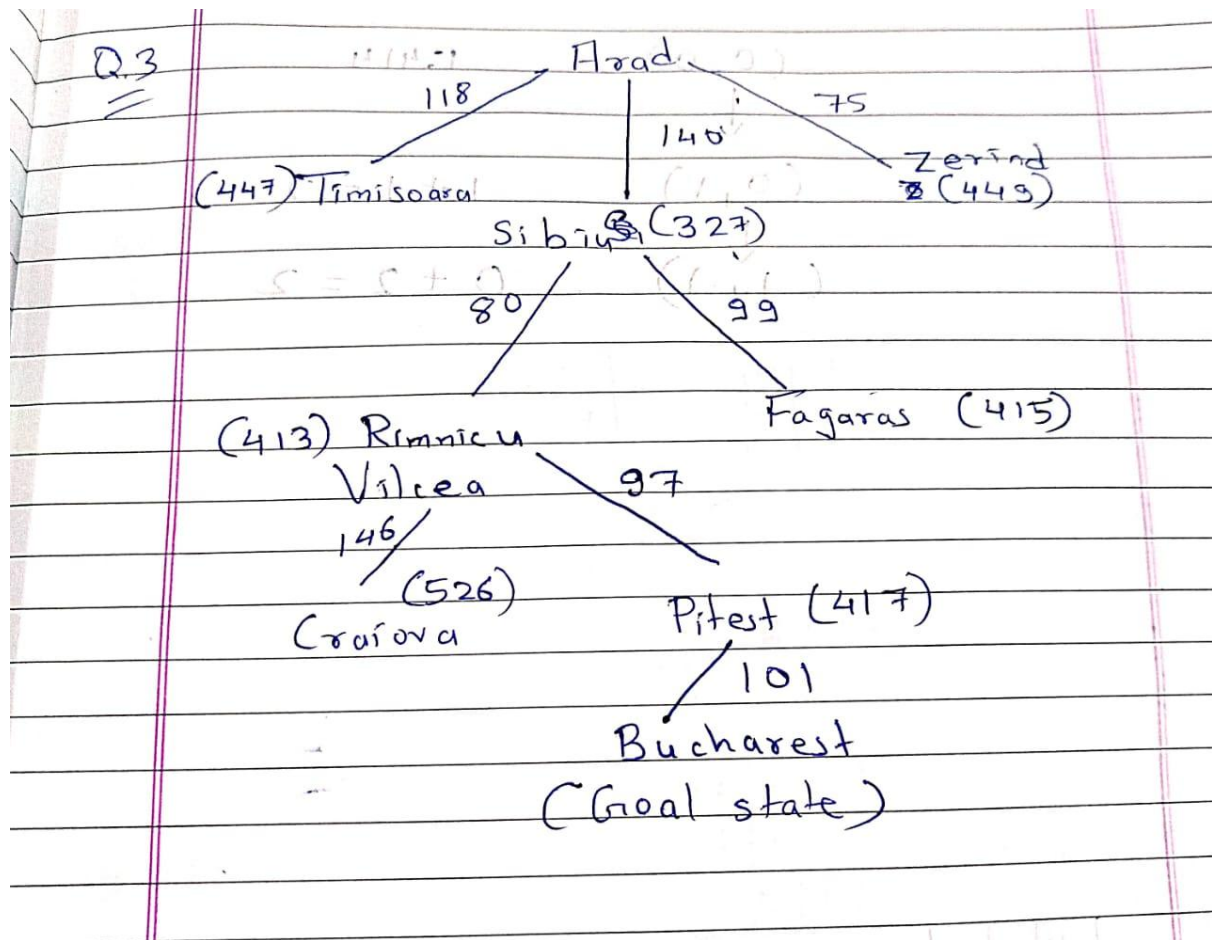 Q.3
Arad
118
140
75
(447) Timisoara
Zerind
(449)
Sibiu (327)
80
99
(413) Rimnicu
Vilcea
Fagaras (415)
97
146
(526)
Craiova
Pitest (417)
101
Bucharest
(Goal state)